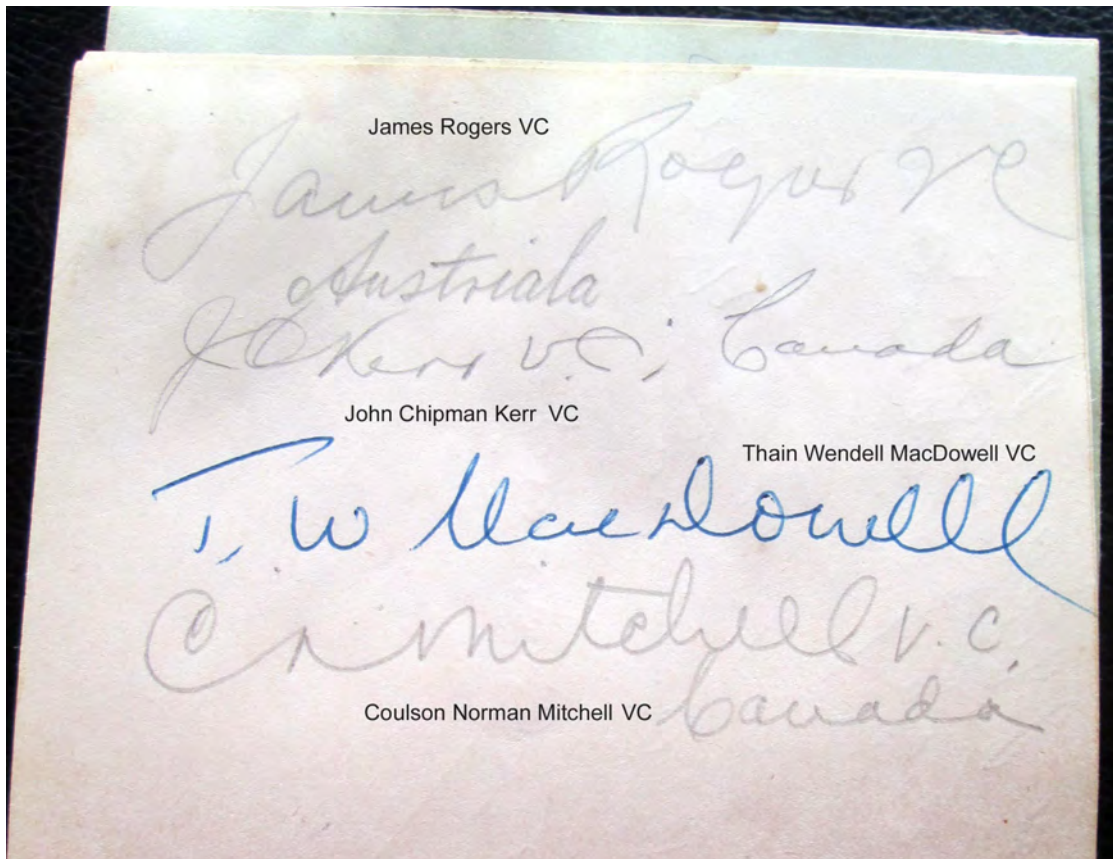 James Rogers VC
James Rogers VC
Austriala
J C Kerr V.C., Canada
John Chipman Kerr VC
Thain Wendell MacDowell VC
T. W MacDowell
C N Mitchell V.C.
Canada
Coulson Norman Mitchell VC